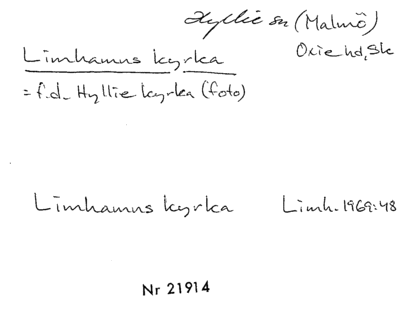 Hyllie sn (Malmö)
Oxie hd, Sk
Limhamns kyrka
= f.d. Hyllie kyrka (foto)
Limhamns kyrka Limh. 1969:48
Nr 21914